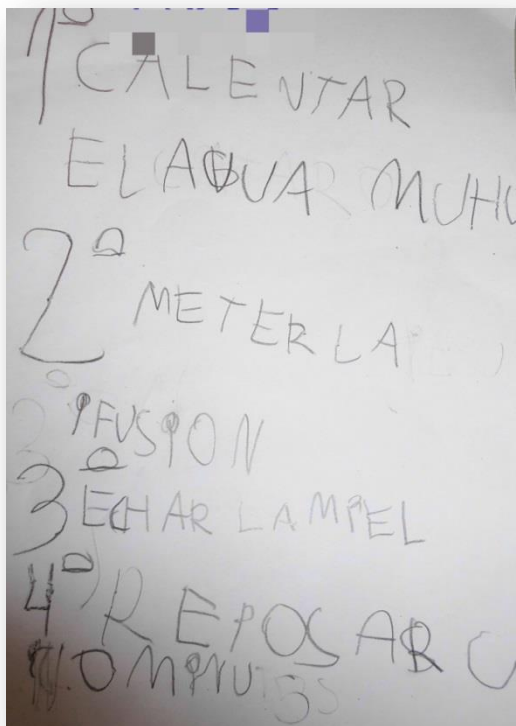 1º
CALENTAR
EL AGUA MUHU
2º
METER LA
IFUSION
3º ECHAR LAMPEL
4º REPOSAR
MINU